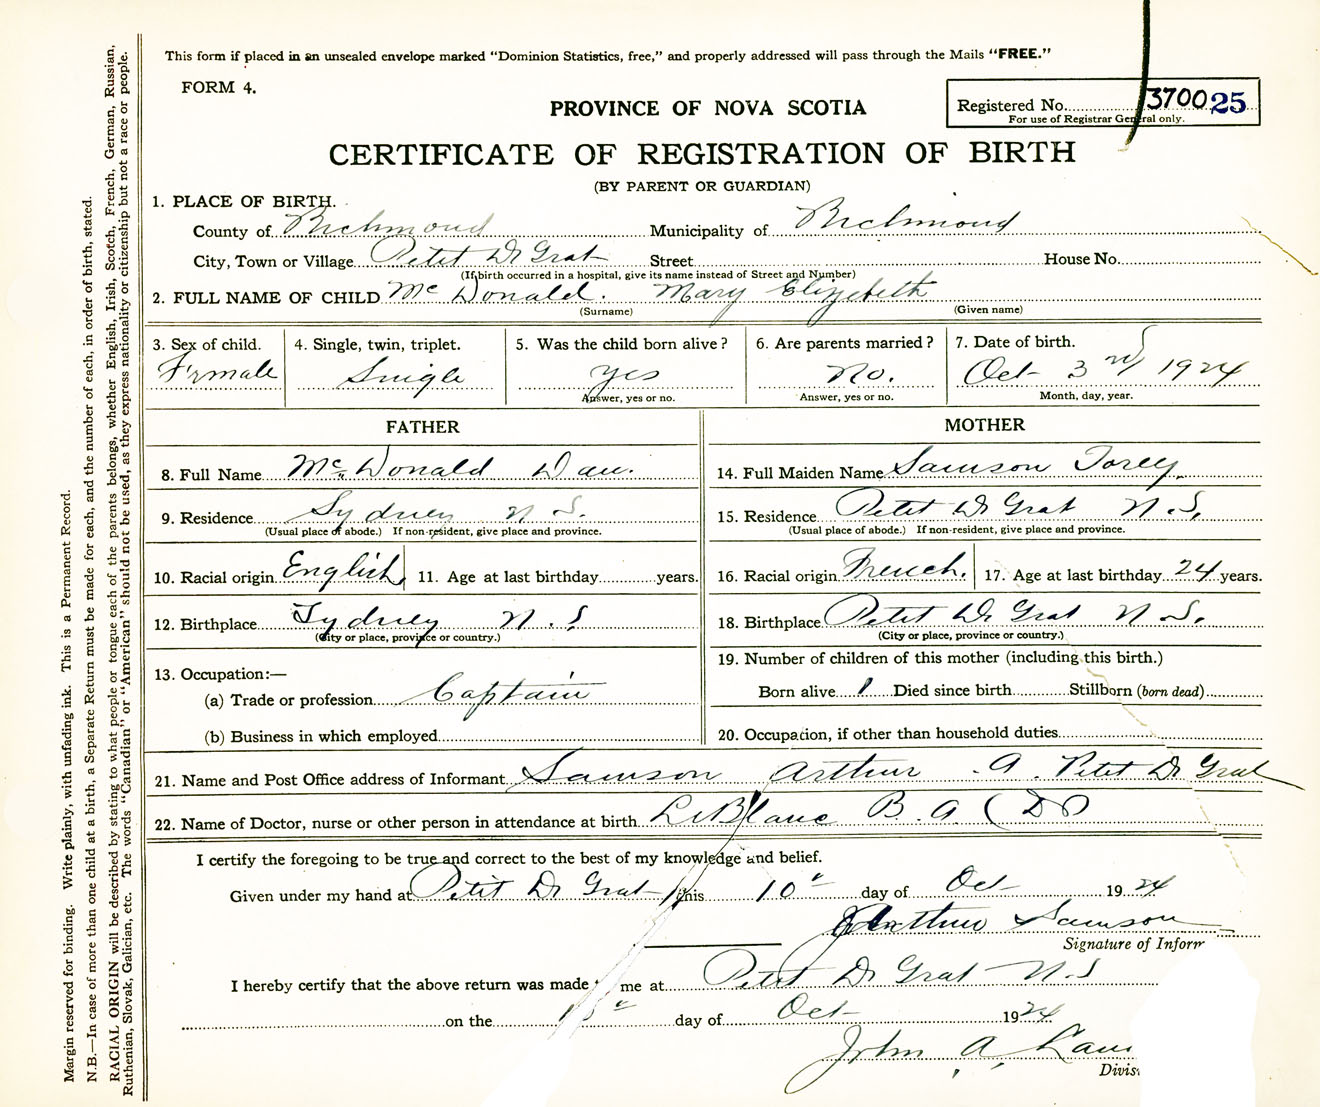 This form if placed in an unsealed envelope marked “Dominion Statistics, free,” and properly addressed will pass through the Mails “FREE.”
FORM 4.
PROVINCE OF NOVA SCOTIA
Registered No. 3700 25
For use of Registrar General only.
CERTIFICATE OF REGISTRATION OF BIRTH
(BY PARENT OR GUARDIAN)
1. PLACE OF BIRTH.
County of Richmond Municipality of Richmond
City, Town or Village Petit De Grat Street House No.
(If birth occurred in a hospital, give its name instead of Street and Number)
2. FULL NAME OF CHILD McDonald. Mary Elizebeth
(Surname) (Given name)
3. Sex of child. 4. Single, twin, triplet. 5. Was the child born alive? 6. Are parents married? 7. Date of birth.
Female Single yes No. Oct 3rd 1924
Answer, yes or no. Answer, yes or no. Month, day, year.
FATHER
8. Full Name McDonald Dan.
9. Residence Sydney N S.
(Usual place of abode.) If non-resident, give place and province.
10. Racial origin English. 11. Age at last birthday years.
12. Birthplace Sydney N. S
(City or place, province or country.)
13. Occupation:—
(a) Trade or profession Captain
(b) Business in which employed
MOTHER
14. Full Maiden Name Samson
15. Residence Petit De Grat N.S.
(Usual place of abode.) If non-resident, give place and province.
16. Racial origin French. 17. Age at last birthday 24 years.
18. Birthplace Petit De Grat N.S.
(City or place, province or country.)
19. Number of children of this mother (including this birth.)
Born alive 1 Died since birth Stillborn (born dead)
20. Occupation, if other than household duties
21. Name and Post Office address of Informant Samson Arthur . A . Petit De Grat
22. Name of Doctor, nurse or other person in attendance at birth LeBlanc B. A.
I certify the foregoing to be true and correct to the best of my knowledge and belief.
Given under my hand at Petit De Grat this 10" day of Oct 1924
Arthur Samson
Signature of Inform
I hereby certify that the above return was made me at Petit De Grat N.S
on the day of Oct 1924
John A
Divis
Margin reserved for binding. Write plainly, with unfading ink. This is a Permanent Record.
N.B.—In case of more than one child at a birth, a Separate Return must be made for each, and the number of each, in order of birth, stated.
RACIAL ORIGIN will be described by stating to what people or tongue each of the parents belongs, whether English, Irish, Scotch, French, German, Russian,
Ruthenian, Slovak, Galician, etc. The words “Canadian” or “American” should not be used, as they express nationality or citizenship but not a race or people.